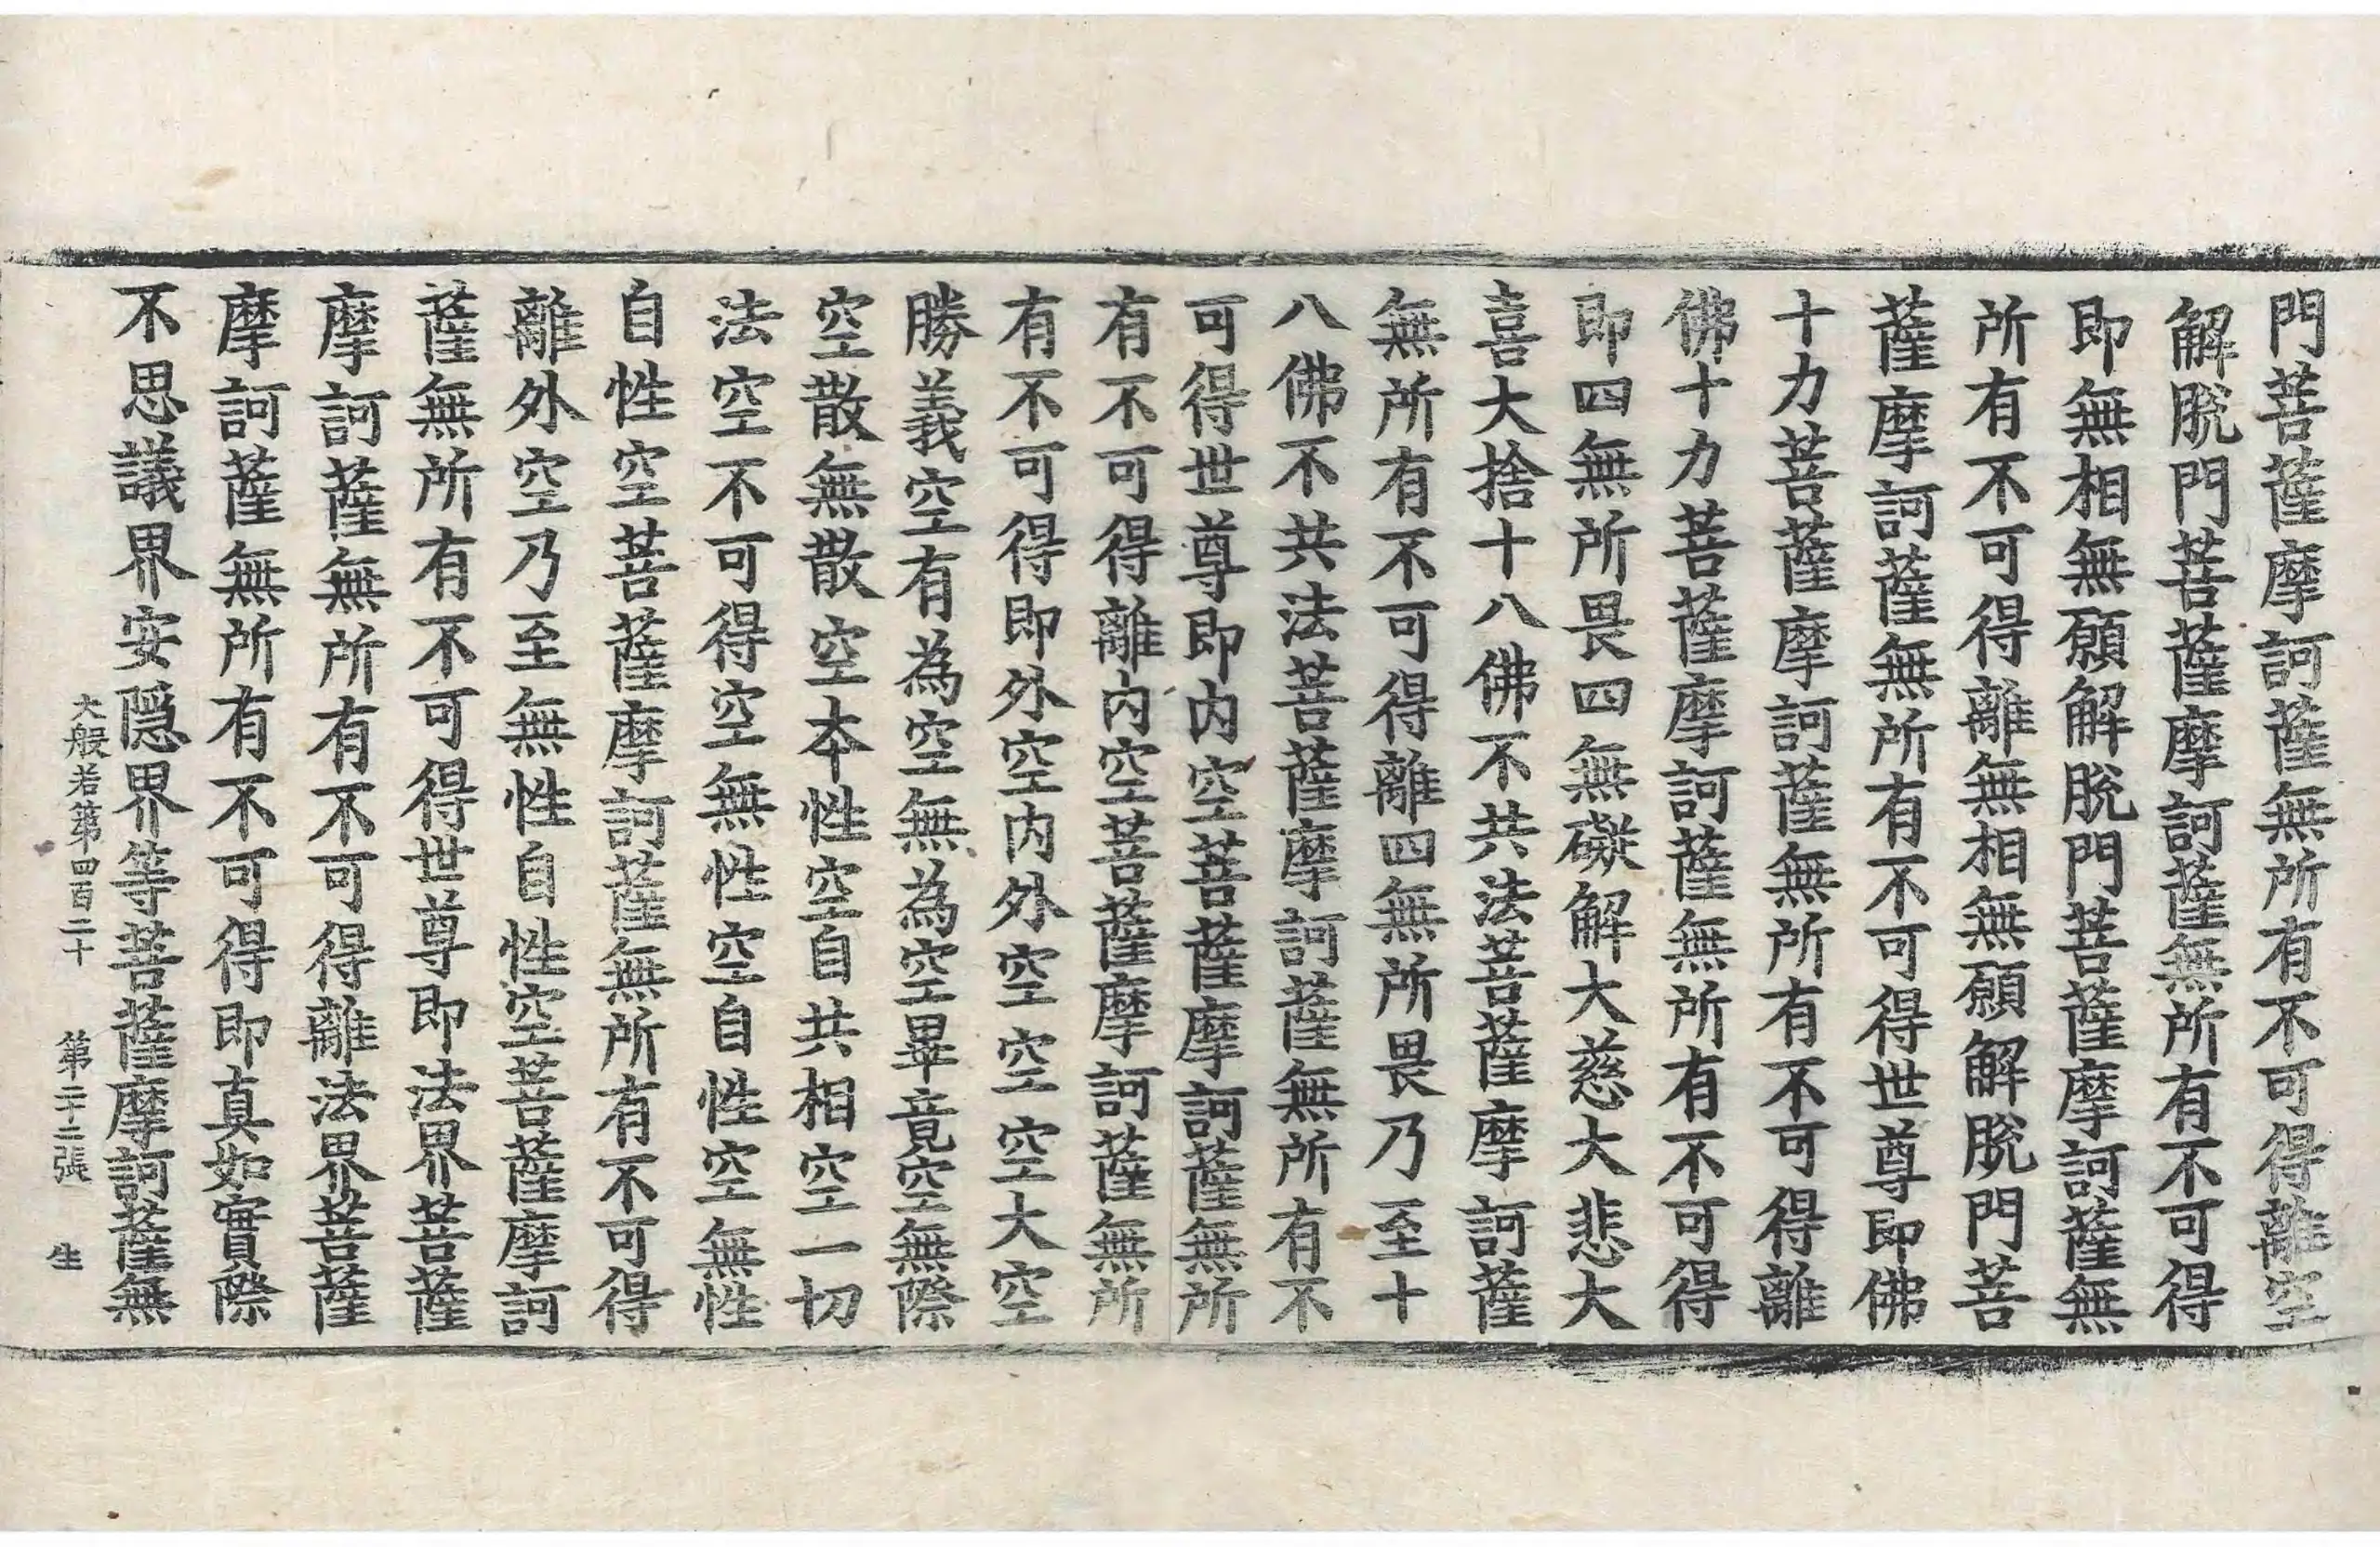 門菩薩摩訶薩無所有不可得離空
解脫門菩薩摩訶薩無所有不可得
即無相無願解脫門菩薩摩訶薩無
所有不可得離無相無願解脫門菩
薩摩訶薩無所有不可得世尊即佛
十力菩薩摩訶薩無所有不可得離
佛十力菩薩摩訶薩無所有不可得
即四無所畏四無礙解大慈大悲大
喜大捨十八佛不共法菩薩摩訶薩
無所有不可得離四無所畏乃至十
八佛不共法菩薩摩訶薩無所有不
可得世尊即內空菩薩摩訶薩無所
有不可得離內空菩薩摩訶薩無所
有不可得即外空內外空空空大空
勝義空有為空無為空畢竟空無際
空散無散空本性空自共相空一切
法空不可得空無性空自性空無性
自性空菩薩摩訶薩無所有不可得
離外空乃至無性自性空菩薩摩訶
薩無所有不可得世尊即法界菩薩
摩訶薩無所有不可得離法界菩薩
摩訶薩無所有不可得即真如實際
不思議界安隱界等菩薩摩訶薩無
大般若第四百二十 第二十二張 生